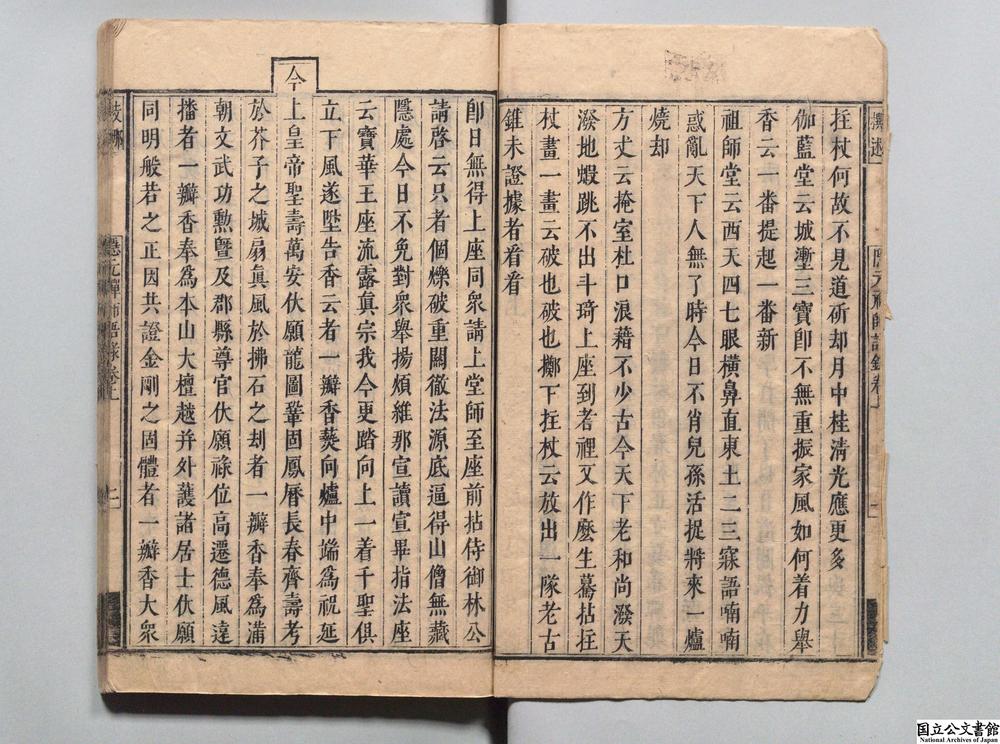 拄杖何故不見道斫却月中桂淸光應更多
伽藍堂云城塹三寶卽不無重振家風如何着力舉
香云一番提起一番新
祖師堂云西天四七眼橫鼻直東土二三寐語喃喃
惑亂天下人無了時今日不肖兒孫活捉將來一爐
燒却
方丈云掩室杜口浪藉不少古今天下老和尚潑天
潑地蝦跳不出斗琦上座到者裡又作麽生驀拈拄
杖畫一畫云破也破也擲下拄杖云放出一隊老古
錐未證據者看看
卽日無得上座同衆請上堂師至座前拈侍御林公
請啓云只者個爍破重關徹法源底逼得山僧無藏
隱處今日不免對衆舉揚煩維那宣讀宣畢指法座
云寶華王座流露眞宗我今更踏向上一着千聖俱
立下風遂陞告香云者一瓣香爇向爐中端爲祝延
今
上皇帝聖壽萬安伏願龍圖鞏固鳳曆長春齊壽考
於芥子之城扇眞風於拂石之刧者一瓣香奉爲滿
朝文武功勳曁及郡縣尊官伏願祿位高遷德風遠
播者一瓣香奉爲本山大檀越并外護諸居士伏願
同明般若之正因共證金剛之固體者一瓣香大衆
國立公文書館
National Archives of Japan